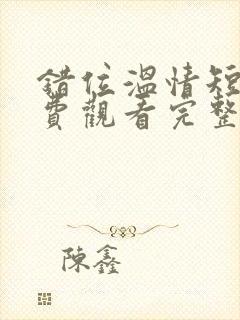 錯位溫情短
費觀看完整
陳鑫